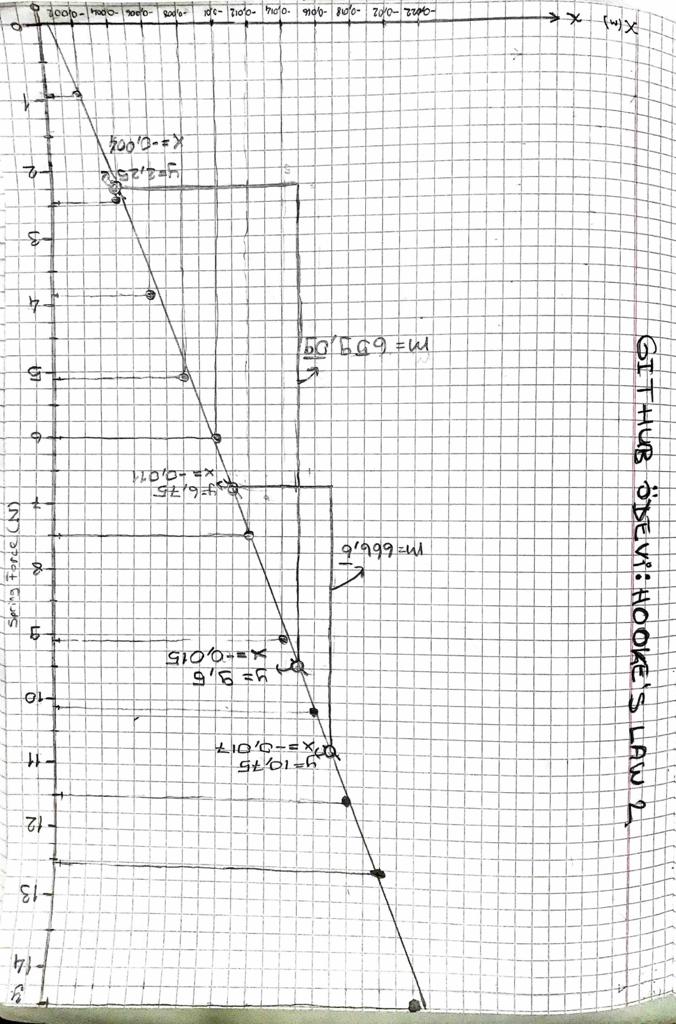 GITHUB ÖDEVi: HOOKE'S LAW 2
y
14
13
12
11
10
9
8
7
6
5
4
3
2
1
0
0
Spring Force (N)
y=10,75
x=-0,017
y=9,5
x=-0,015
m=666,6̅
y=6,75
x=-0,011
m=659,09
y=2,25
x=-0,004
X(m) x
-0,022 -0,02 -0,018 -0,016 -0,014 -0,012 -0,01 -0,008 -0,006 -0,004 -0,002